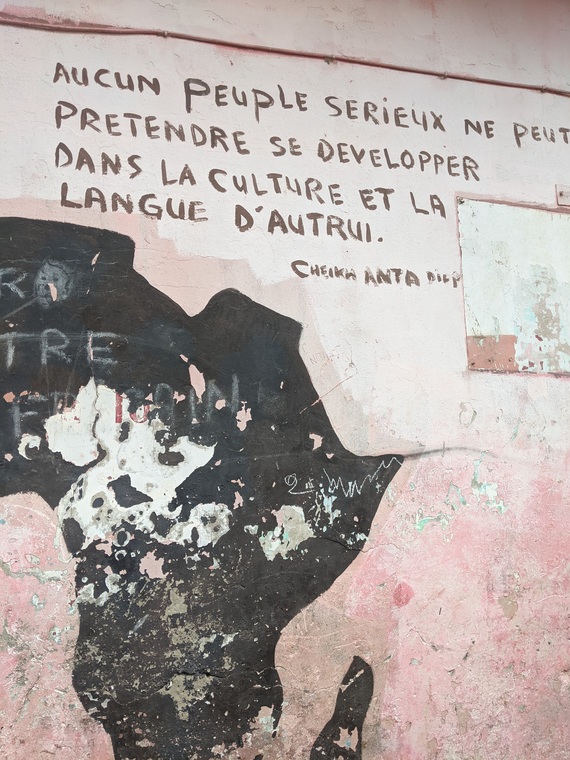 AUCUN PEUPLE SERIEUX NE PEUT
PRETENDRE SE DEVELOPPER
DANS LA CULTURE ET LA
LANGUE D'AUTRUI.
CHEIKH ANTA DIOP
TRE